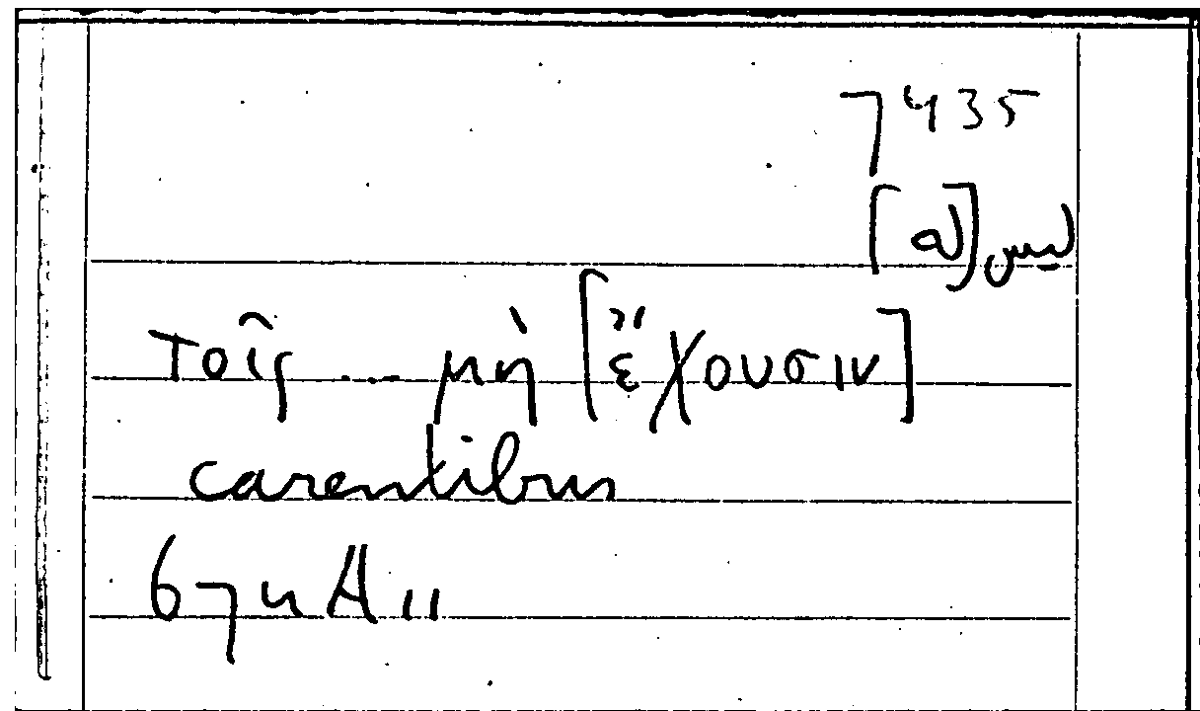 7435
ليس [له]
τοῖς ... μὴ [ἔχουσιν]
carentibus
674 A 11